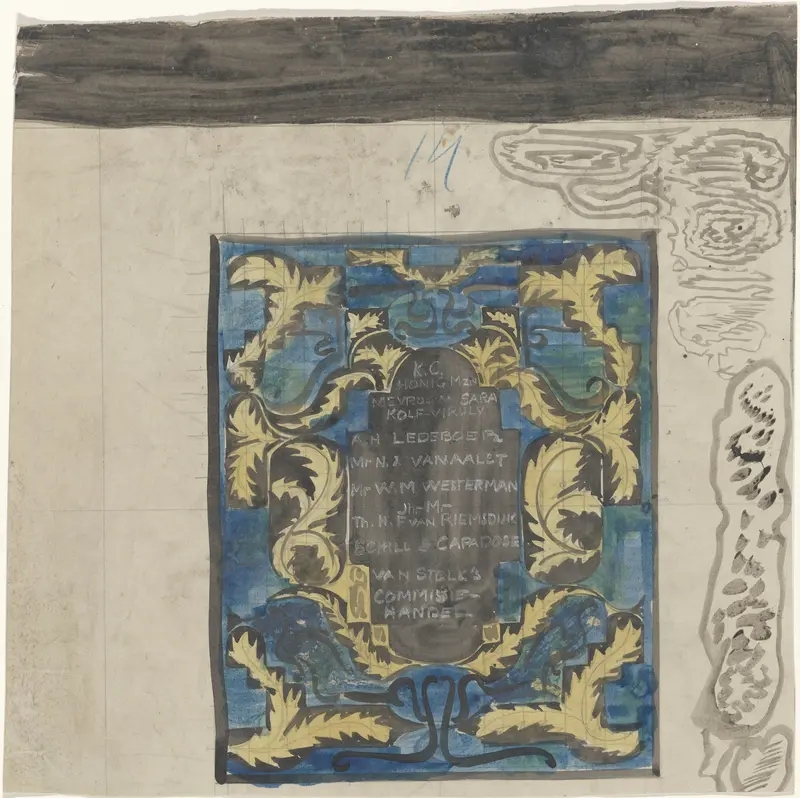 14
K.C.
HONIG MZN
MEVROUW SARA
KOLF-VIRULY
A.H LEDEBOER
Mr N. J. VAN AALST
Mr W.M WESTERMAN
Jhr M—
Th. H. F VAN RIEMSDIJK
SCHILL & CAPADOSE
VAN STOLK'S
COMMISIE—
HANDEL—